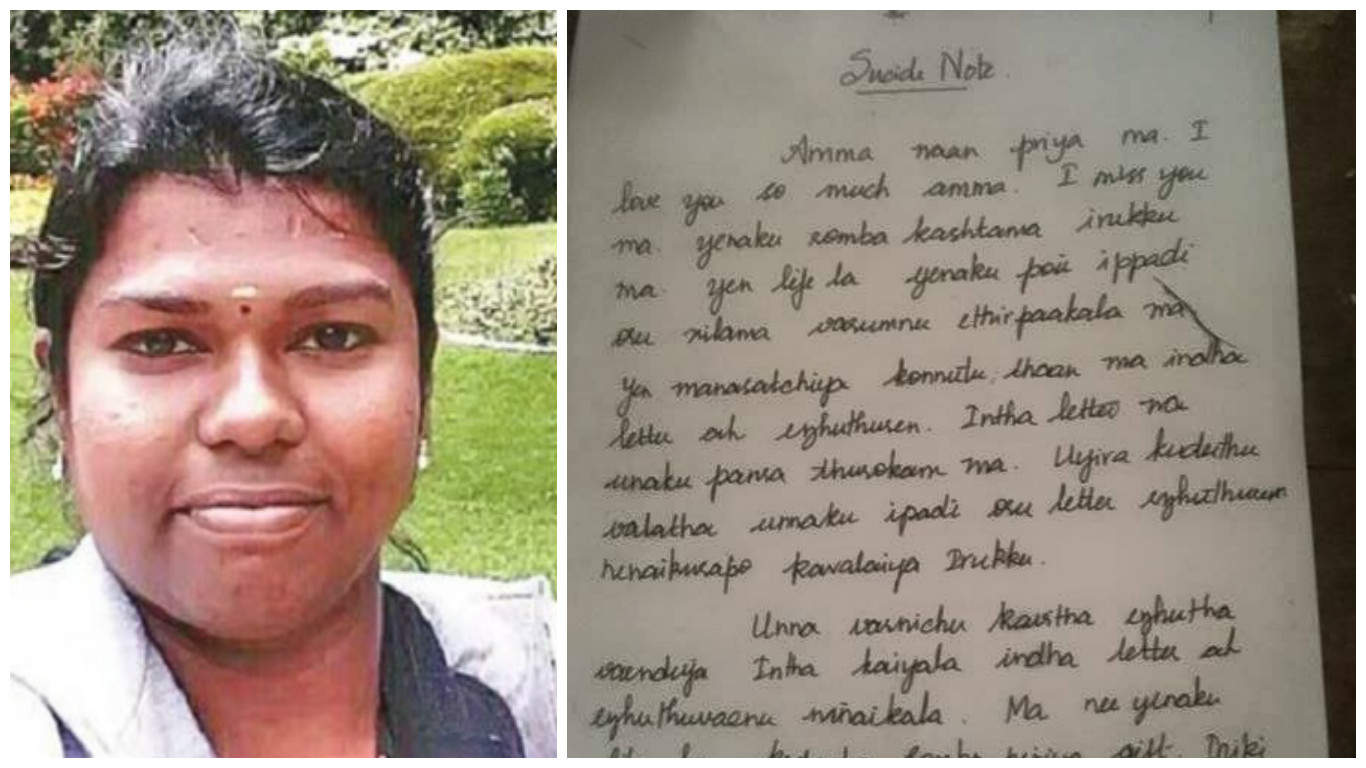 Suicide Note.
Amma naan priya ma. I
love you so much amma. I miss you
ma. yenaku romba kashtama irukku
ma. yen life la yenaku poi ippadi
oru nilama varumnu ethirpaakala ma
Yen manasatchiya konnutu thaan ma indha
letter ah ezhuthuren. Intha letter na
unaku panra thurokam ma. Uyira kuduthu
valatha unnaku ipadi oru letter ezhuthurom
nenaikurapo kavalaiya Irukku.
Unna varnichu kavitha ezhutha
vaendiya Intha kaiyala indha letter ah
ezhuthuvaenu ninaikala. Ma nee yenaku
romba periya gift.